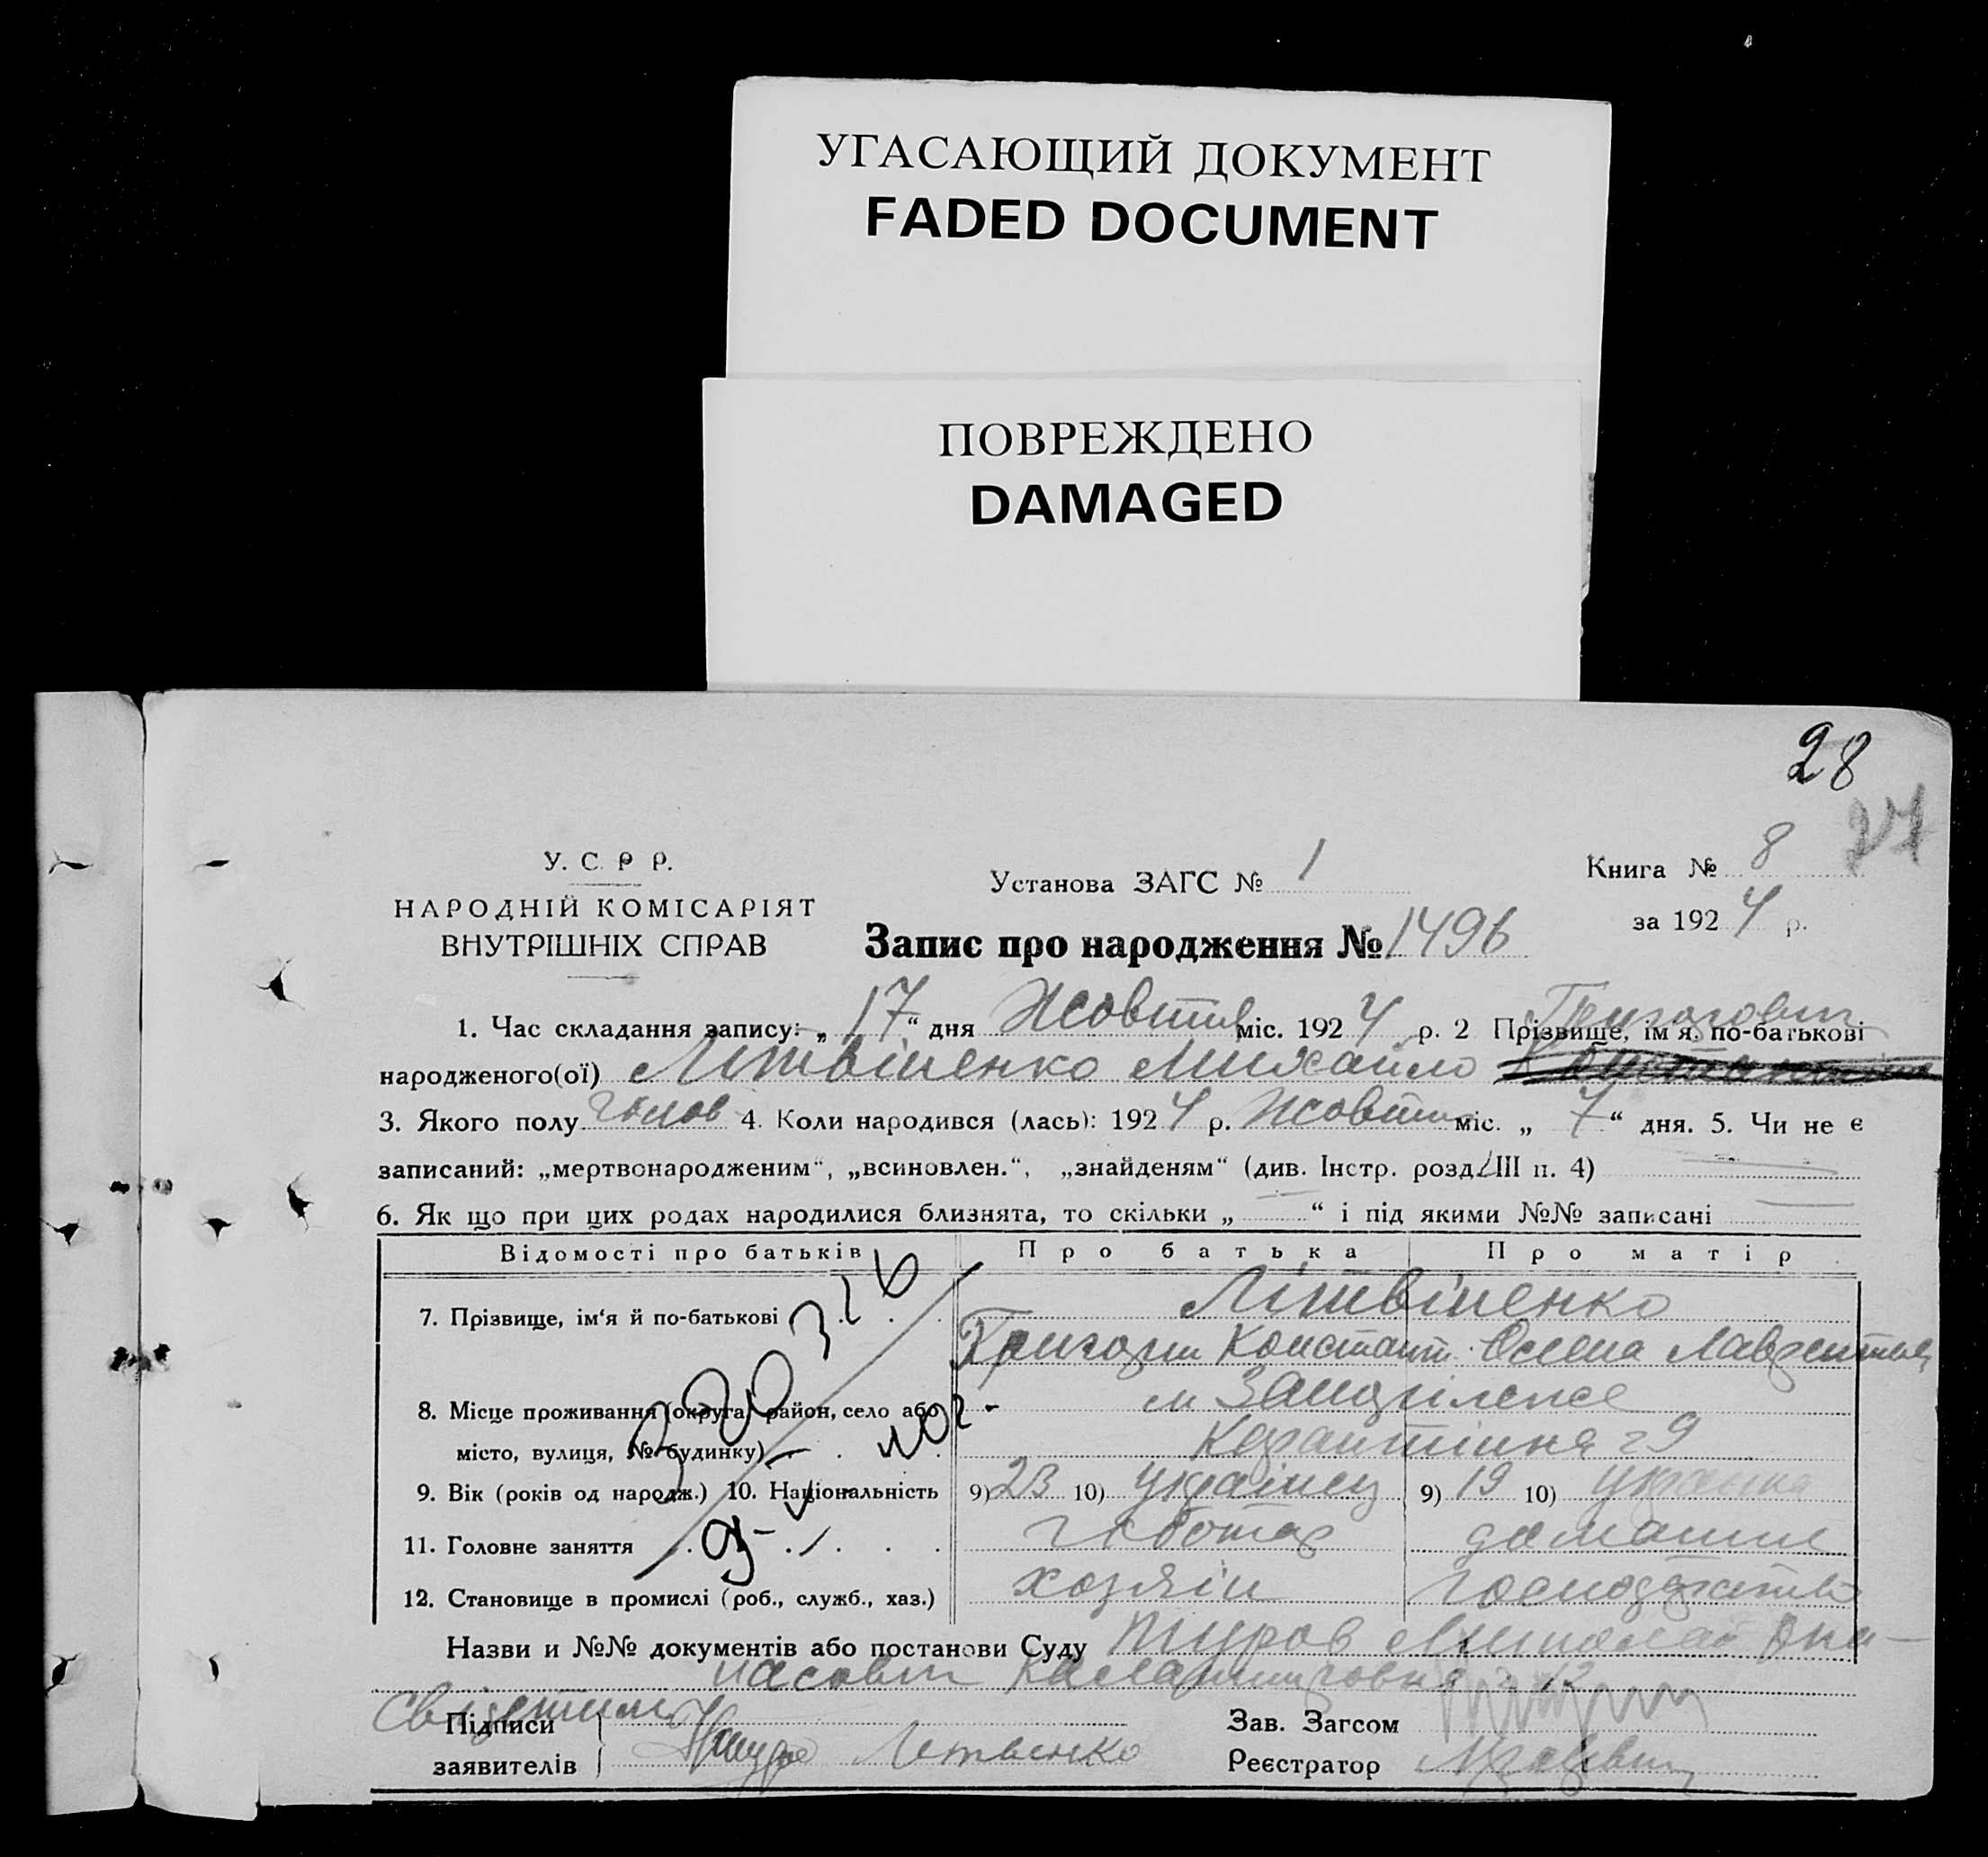 УГАСАЮЩИЙ ДОКУМЕНТ
FADED DOCUMENT
ПОВРЕЖДЕНО
DAMAGED
28
27
У. С. Р Р.
НАРОДНІЙ КОМІСАРІЯТ
ВНУТРІШНІХ СПРАВ
Установа ЗАГС № 1
Книга № 8
за 1924 р.
Запис про народження № 1496
1. Час складання запису: „17“ дня Жовтня міс. 1924 р. 2 Прізвище, ім'я, по-батькові
Григорович
народженого(ої) Літвіненко Михайло
3. Якого полу 4. Коли народився (лась): 1924 р. Жовтня міс. „7“ дня. 5. Чи не є
записаний: „мертвонародженим“, „всиновлен.“, „знайденям“ (див. Інстр. розд. III п. 4)
6. Як що при цих родах народилися близнята, то скільки „ “ і під якими №№ записані
Відомості про батьків Про батька Про матір
7. Прізвище, ім‘я й по-батькові Літвіненко
Григорій Констант. Олена Лаврентьев
8. Місце проживання (округа, район, село або
місто, вулиця, № будинку) Карантінна 29
9. Вік (років од народж.) 10. Національність 9) 23 10) українец 9) 19 10) українка
11. Головне заняття домашнє
12. Становище в промислі (роб., служб., хаз.) хозяін господарство
Назви и №№ документів або постанови Суду
Свідетили
Підписи
заявителів Литвенко
Зав. Загсом
Реєстратор